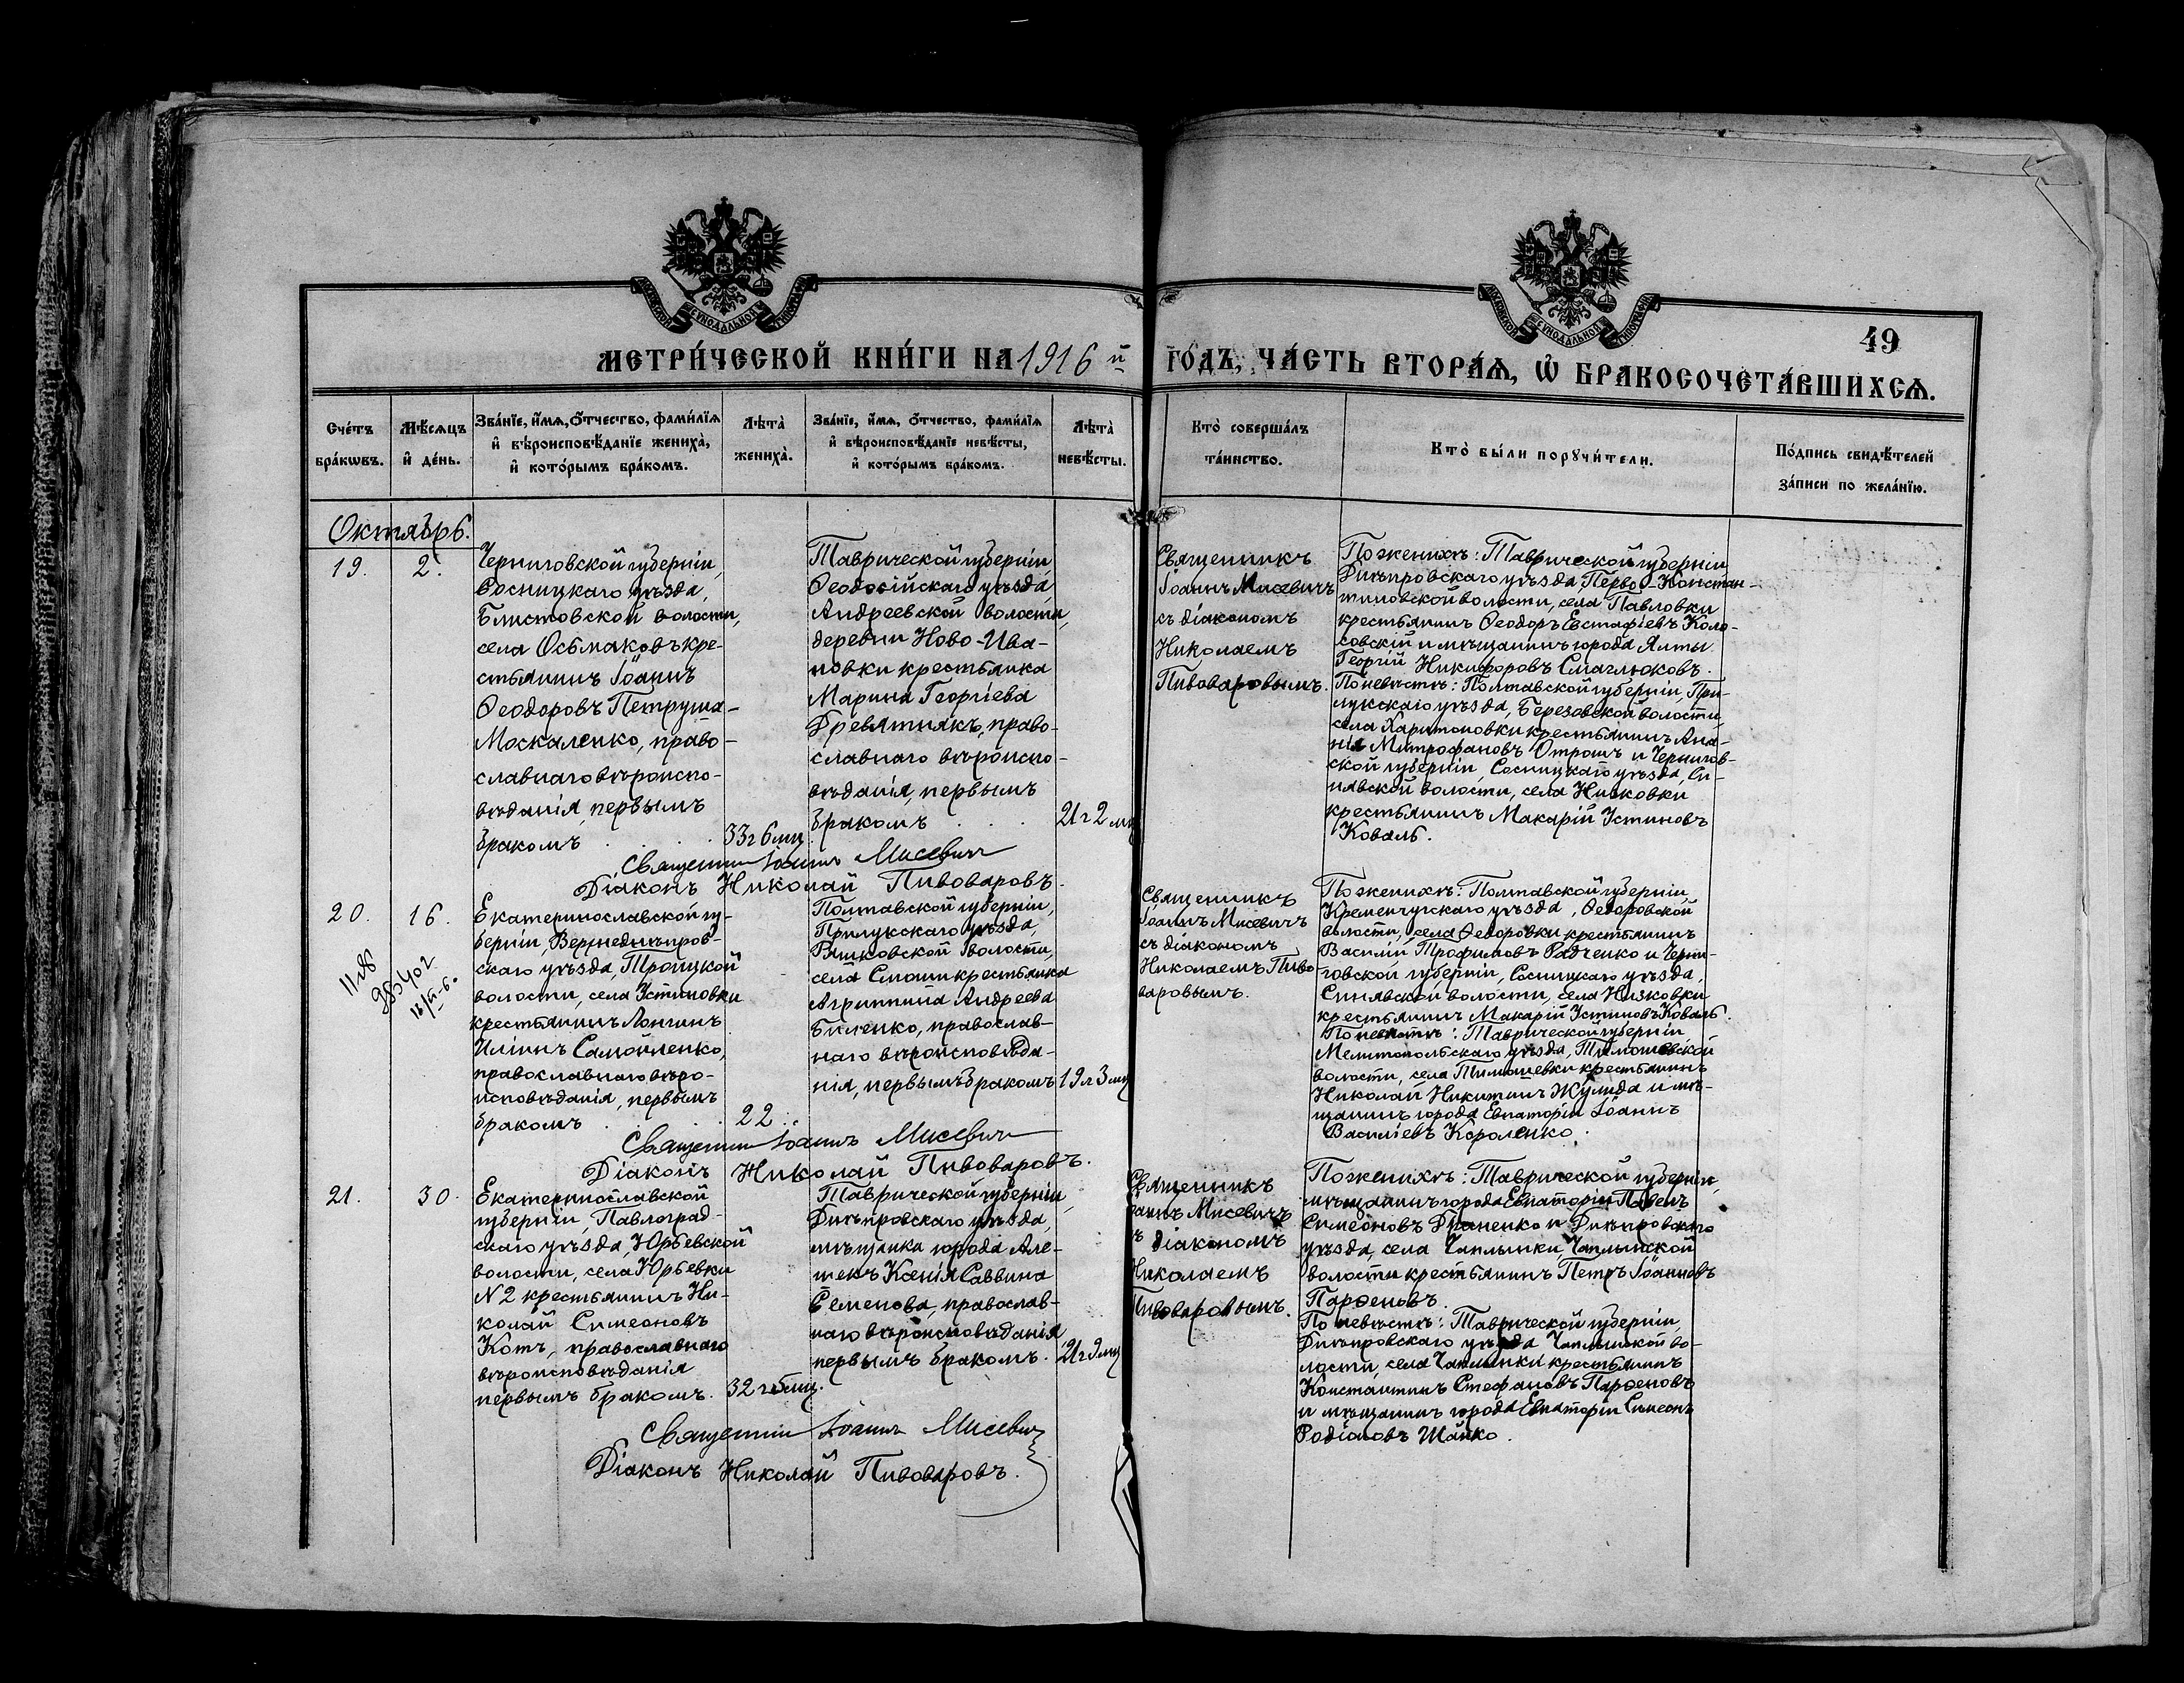 МЕТРИ́ЧЕСКОЙ КНИ́ГИ НА 1916 й
ГО́ДЪ, ЧА́СТЬ ВТОРА́Ѧ, Ѽ БРАКОСОЧЕТА́ВШИХСѦ.
49
Сче́тъ
бра́кѡвъ.
Мѣ́сѧцъ
и҆ де́нь.
Зва́нїе, и҆́мѧ, ѻ҆́тчество, фами́лїѧ
и҆ вѣроисповѣ́данїе жениха̀,
и҆ кото́рымъ бра́комъ.
Лѣ́та̀
жениха̀.
Зва́нїе, и҆́мѧ, ѻ҆́тчество, фами́лїѧ
и҆ вѣроисповѣ́данїе невѣ́сты,
и҆ кото́рымъ бра́комъ.
Лѣ́та̀
невѣ́сты.
Кто̀ соверша́лъ
та́инство.
Кто̀ бы́ли порꙋчи́тели.
По́дпись свидѣ́телей
за́писи по жела́нїю.
Октябрь.
19.
2.
Черниговской губерніи,
Сосницкаго уѣзда,
Блистовской волости,
села Осьмаковъ кре-
стьянинъ Іоаннъ
Ѳеодоровъ Петруша-
Москаленко, право-
славнаго вѣроиспо-
вѣданія, первымъ
бракомъ
33 г 6 мц
Таврической губерніи
Ѳеодосійскаго уѣзда,
Андреевской волости,
деревни Ново-Ива-
новки крестьянка
Марина Георгіева
Древятнякъ, право-
славнаго вѣроиспо-
вѣданія, первымъ
бракомъ
21 г 2 мц
Священникъ
Іоаннъ Мисевичъ
съ діакономъ
Николаемъ
Пивоваровымъ.
По женихѣ: Таврической губерніи,
Днѣпровскаго уѣзда, Перво-Констан-
тиновской волости, села Павловки
крестьянинъ Ѳеодоръ Евстафіевъ Коло-
совскій и мѣщанинъ города Ялты
Георгій Никифоровъ Смаглюковъ.
По невѣстѣ: Полтавской губерніи, При-
лукскаго уѣзда, Березовской волости
села Харитоновки крестьянинъ Ана-
нія Митрофановъ Отрошъ и Чернигов-
ской губерніи, Сосницкаго уѣзда, Си-
нявской волости, села Низковки
крестьянинъ Макарій Устиновъ
Коваль.
Священникъ Іоаннъ Мисевичъ
Діаконъ Николай Пивоваровъ.
20.
16.
Екатеринославской гу-
берніи, Верхнеднѣпров-
скаго уѣзда, Троицкой
волости, села Устиновки
крестьянинъ Лонгинъ
Иліинъ Самойленко,
православнаго вѣро-
исповѣданія, первымъ
бракомъ
22.
Полтавской губерніи,
Прилукскаго уѣзда,
села Смоши крестьянка
Агриппина Андреева
Биленко, православ-
наго вѣроисповѣда-
нія, первымъ бракомъ
19 л 3 мц
Священникъ
Іоаннъ Мисевичъ
съ діакономъ
Николаемъ Пиво
варовымъ.
По женихѣ: Полтавской губерніи,
Кременчугскаго уѣзда, Ѳедоровской
волости, села Ѳедоровки крестьянинъ
Василій Трофимовъ Радченко и Черни-
говской губерніи, Сосницкаго уѣзда,
Синявской волости, села Низковки
крестьянинъ Макарій Устиновъ Коваль.
По невѣстѣ: Таврической губерніи
Мелитопольскаго уѣзда, Тимошевской
волости, села Тимошевки крестьянинъ
Николай Никитинъ Жулида и мѣ-
щанинъ города Евпаторіи Іоаннъ
Василіевъ Короленко.
Священникъ Іоаннъ Мисевичъ
Діаконъ Николай Пивоваровъ.
21.
30.
Екатеринославской
губерніи, Павлоград-
скаго уѣзда, Юрьевской
волости, села Юрьевки
№2 крестьянинъ Ни-
колай Симеоновъ
Котъ, православнаго
вѣроисповѣданія
первымъ бракомъ.
32 г 5 мц.
Таврической губерніи,
Днѣпровскаго уѣзда,
мѣщанка города Але-
шекъ Ксенія Саввина
Семенова, православ-
наго вѣроисповѣданія
первымъ бракомъ.
21 г 9 мц
Священникъ
Іоаннъ Мисевичъ
съ діакономъ
Николаемъ
Пивоваровымъ.
По женихѣ: Таврической губерніи,
мѣщанинъ города Евпаторіи Павелъ
Симеоновъ Граненко и Днѣпровскаго
уѣзда, села Чаплынки, Чаплынской
волости крестьянинъ Петръ Іоанновъ
Парѳеновъ.
По невѣстѣ: Таврической губерніи,
Днѣпровскаго уѣзда Чаплынской во-
лости, села Чаплынки крестьянинъ
Константинъ Стефановъ Парѳеновъ
и мѣщанинъ города Евпаторіи Симеонъ
Родіоновъ Шайко.
Священникъ Іоаннъ Мисевичъ
Діаконъ Николай Пивоваровъ.